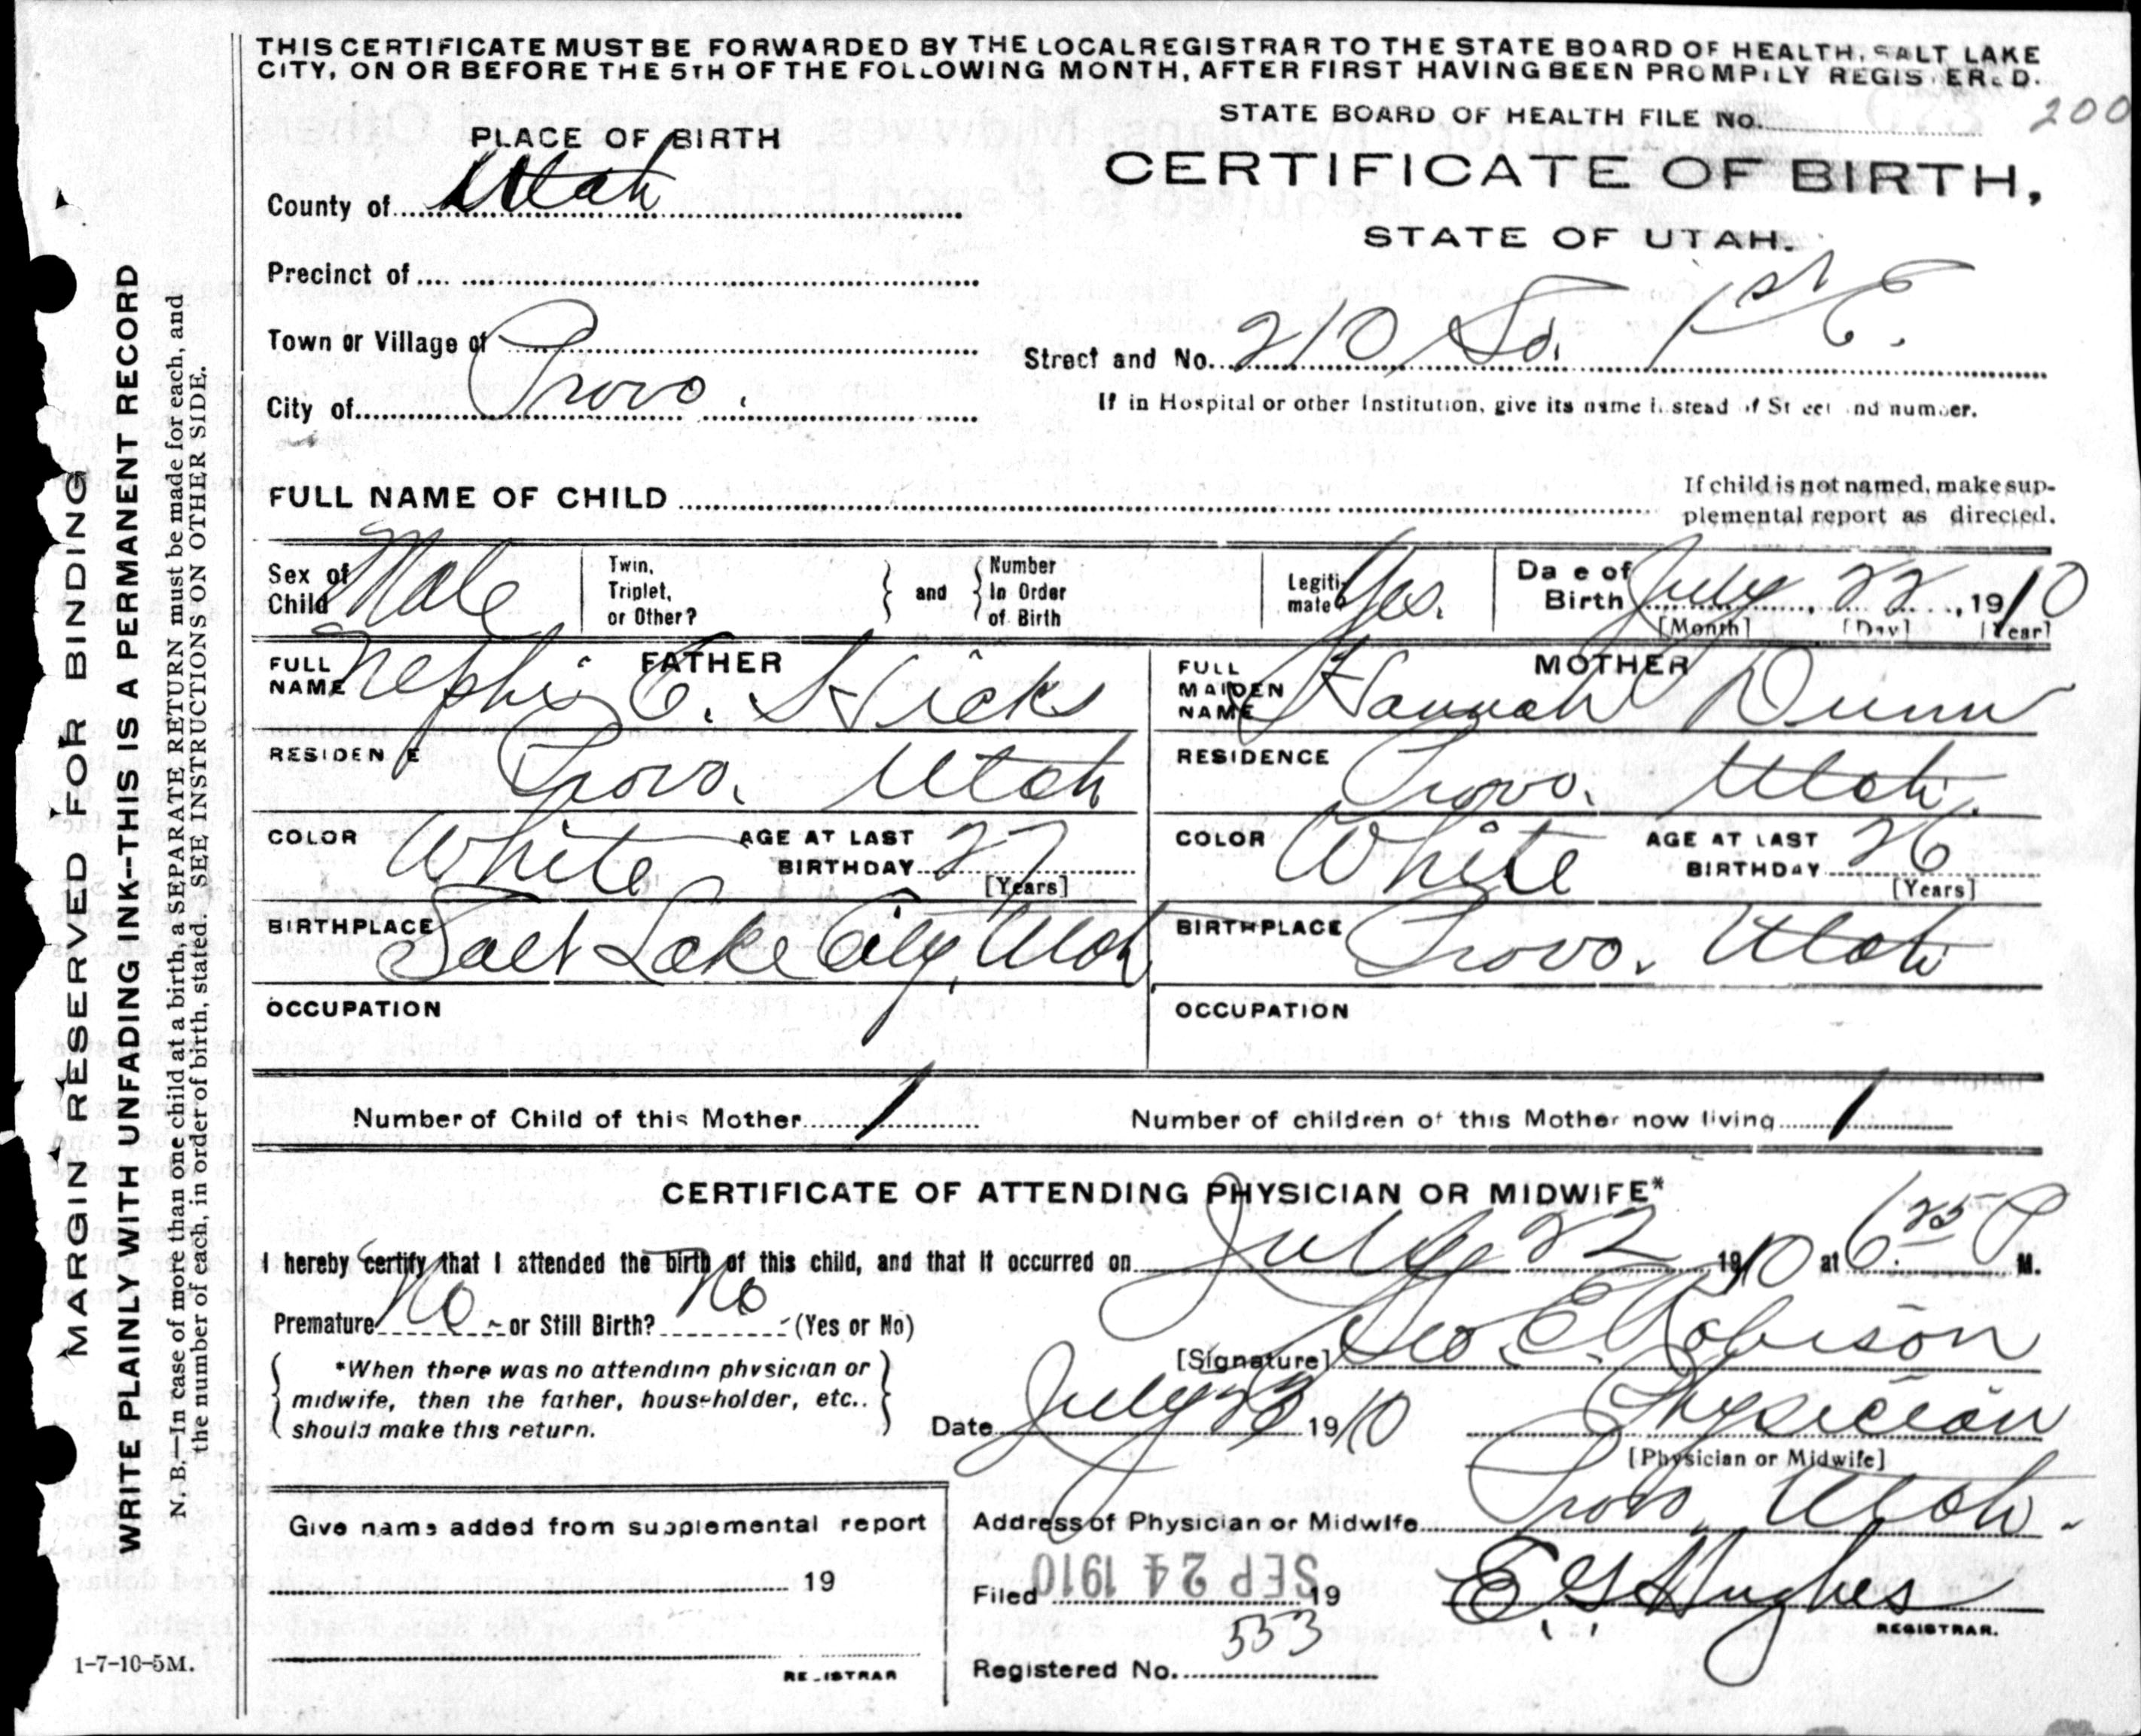 THIS CERTIFICATE MUST BE FORWARDED BY THE LOCAL REGISTRAR TO THE STATE BOARD OF HEALTH, SALT LAKE
CITY, ON OR BEFORE THE 5TH OF THE FOLLOWING MONTH, AFTER FIRST HAVING BEEN PROMPTLY REGISTERED.
STATE BOARD OF HEALTH FILE No. 200
PLACE OF BIRTH
CERTIFICATE OF BIRTH,
STATE OF UTAH.
County of Utah
Precinct of
Town or Village of
City of Provo.
Street and No. 210 So. 1st E.
If in Hospital or other Institution, give its name instead of Street and number.
FULL NAME OF CHILD
If child is not named, make sup-
plemental report as directed.
Sex of Child Male
Twin, Triplet, or Other?
and
Number In Order of Birth
Legitimate? Yes.
Date of Birth July 22, 1910
[Month] [Day] [Year]
FATHER
FULL NAME Nephi E. Hicks
RESIDENCE Provo, Utah
COLOR White AGE AT LAST BIRTHDAY 27 [Years]
BIRTHPLACE Salt Lake City, Utah
OCCUPATION
MOTHER
FULL MAIDEN NAME Hannah Dunn
RESIDENCE Provo, Utah.
COLOR White AGE AT LAST BIRTHDAY 26 [Years]
BIRTHPLACE Provo. Utah
OCCUPATION
Number of Child of this Mother 1 Number of children of this Mother now living 1
CERTIFICATE OF ATTENDING PHYSICIAN OR MIDWIFE*
I hereby certify that I attended the birth of this child, and that it occurred on July 22 1910 at 6:25 P M.
Premature No or Still Birth? No (Yes or No)
*When there was no attending physician or
midwife, then the father, householder, etc..
should make this return.
[Signature] Geo. E. Robison
Date July 23 1910 Physician
[Physician or Midwife]
Address of Physician or Midwife Provo, Utah.
Give name added from supplemental report
19
REGISTRAR
Filed SEP 24 1910 19
E. G. Hughes
REGISTRAR.
Registered No. 533
1-7-10-5M.
MARGIN RESERVED FOR BINDING
WRITE PLAINLY WITH UNFADING INK--THIS IS A PERMANENT RECORD
N. B.—In case of more than one child at a birth, a SEPARATE RETURN must be made for each, and
the number of each, in order of birth, stated. SEE INSTRUCTIONS ON OTHER SIDE.